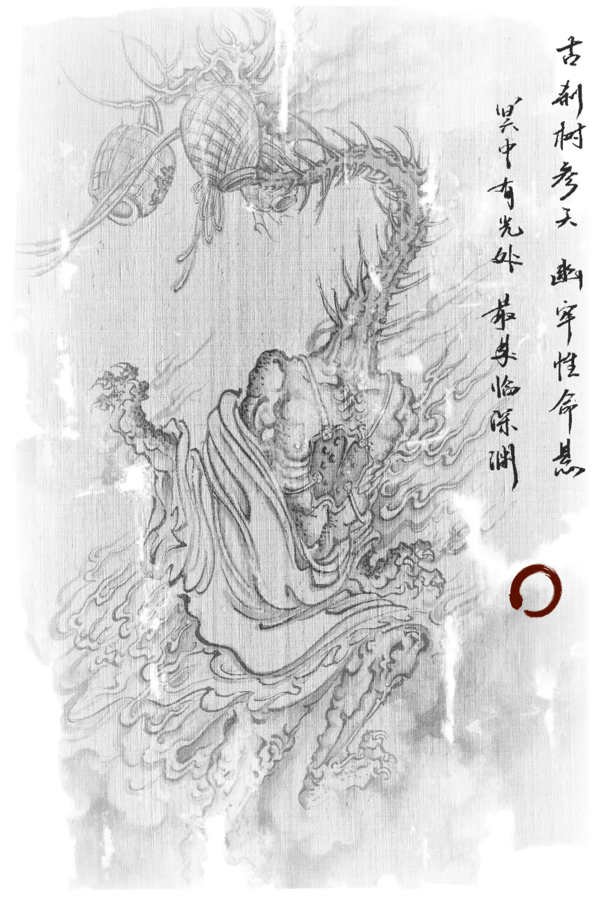 古刹树参天 幽牢性命悬
冥中有光处 最是临深渊